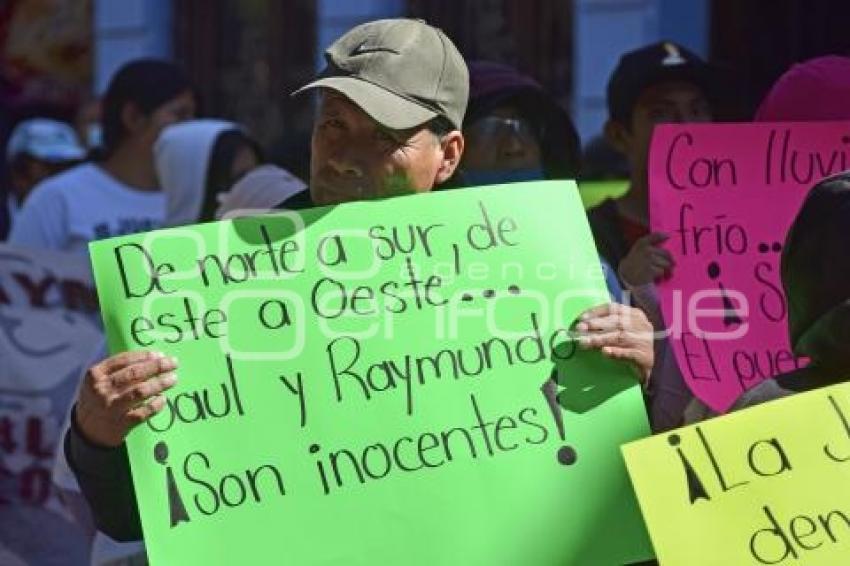 De norte a sur, de
este a Oeste....
Saul y Raymundo
¡Son inocentes!
Con lluvi
frío...
¡S
El pue
¡La J
den
agencia
enfoque